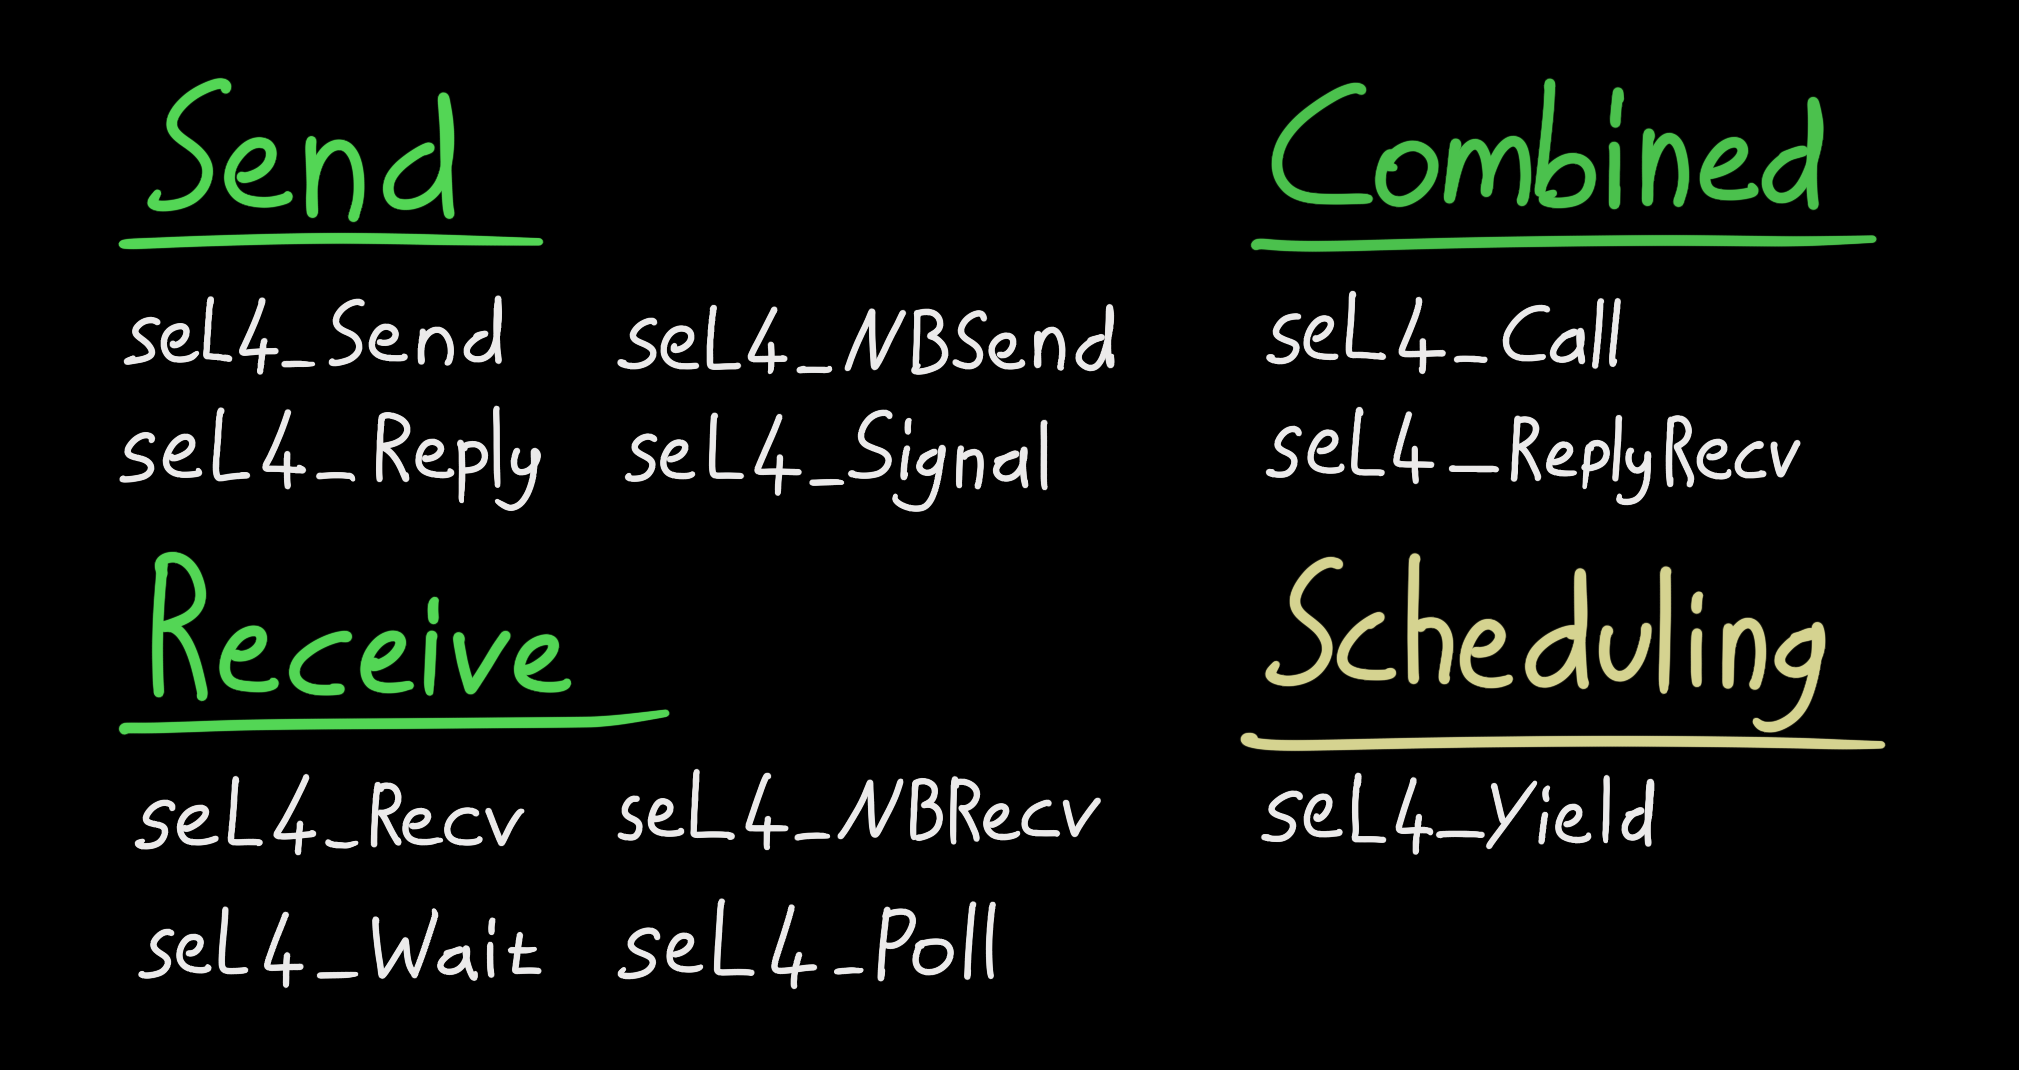 Send
seL4_Send seL4_NBSend
seL4_Reply seL4_Signal
Receive
seL4_Recv seL4_NBRecv
seL4_Wait seL4_Poll
Combined
seL4_Call
seL4_ReplyRecv
Scheduling
seL4_Yield